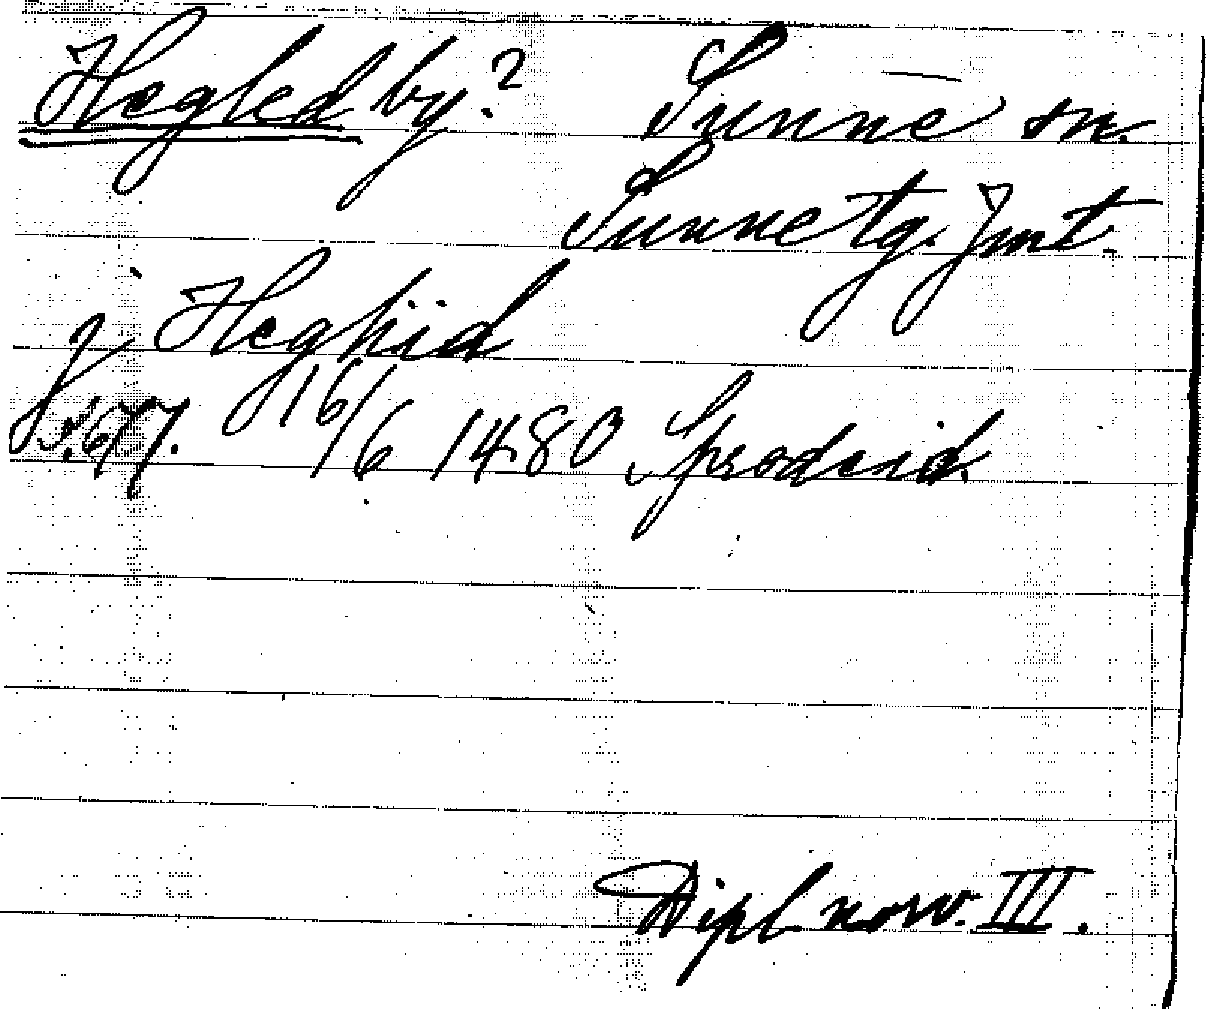 Hegled by? Sunne sn.
Sunne tg. Jmt.
j Heghid
s. 677. 16/6 1480 Sproderid.
Dipl. norv. III.